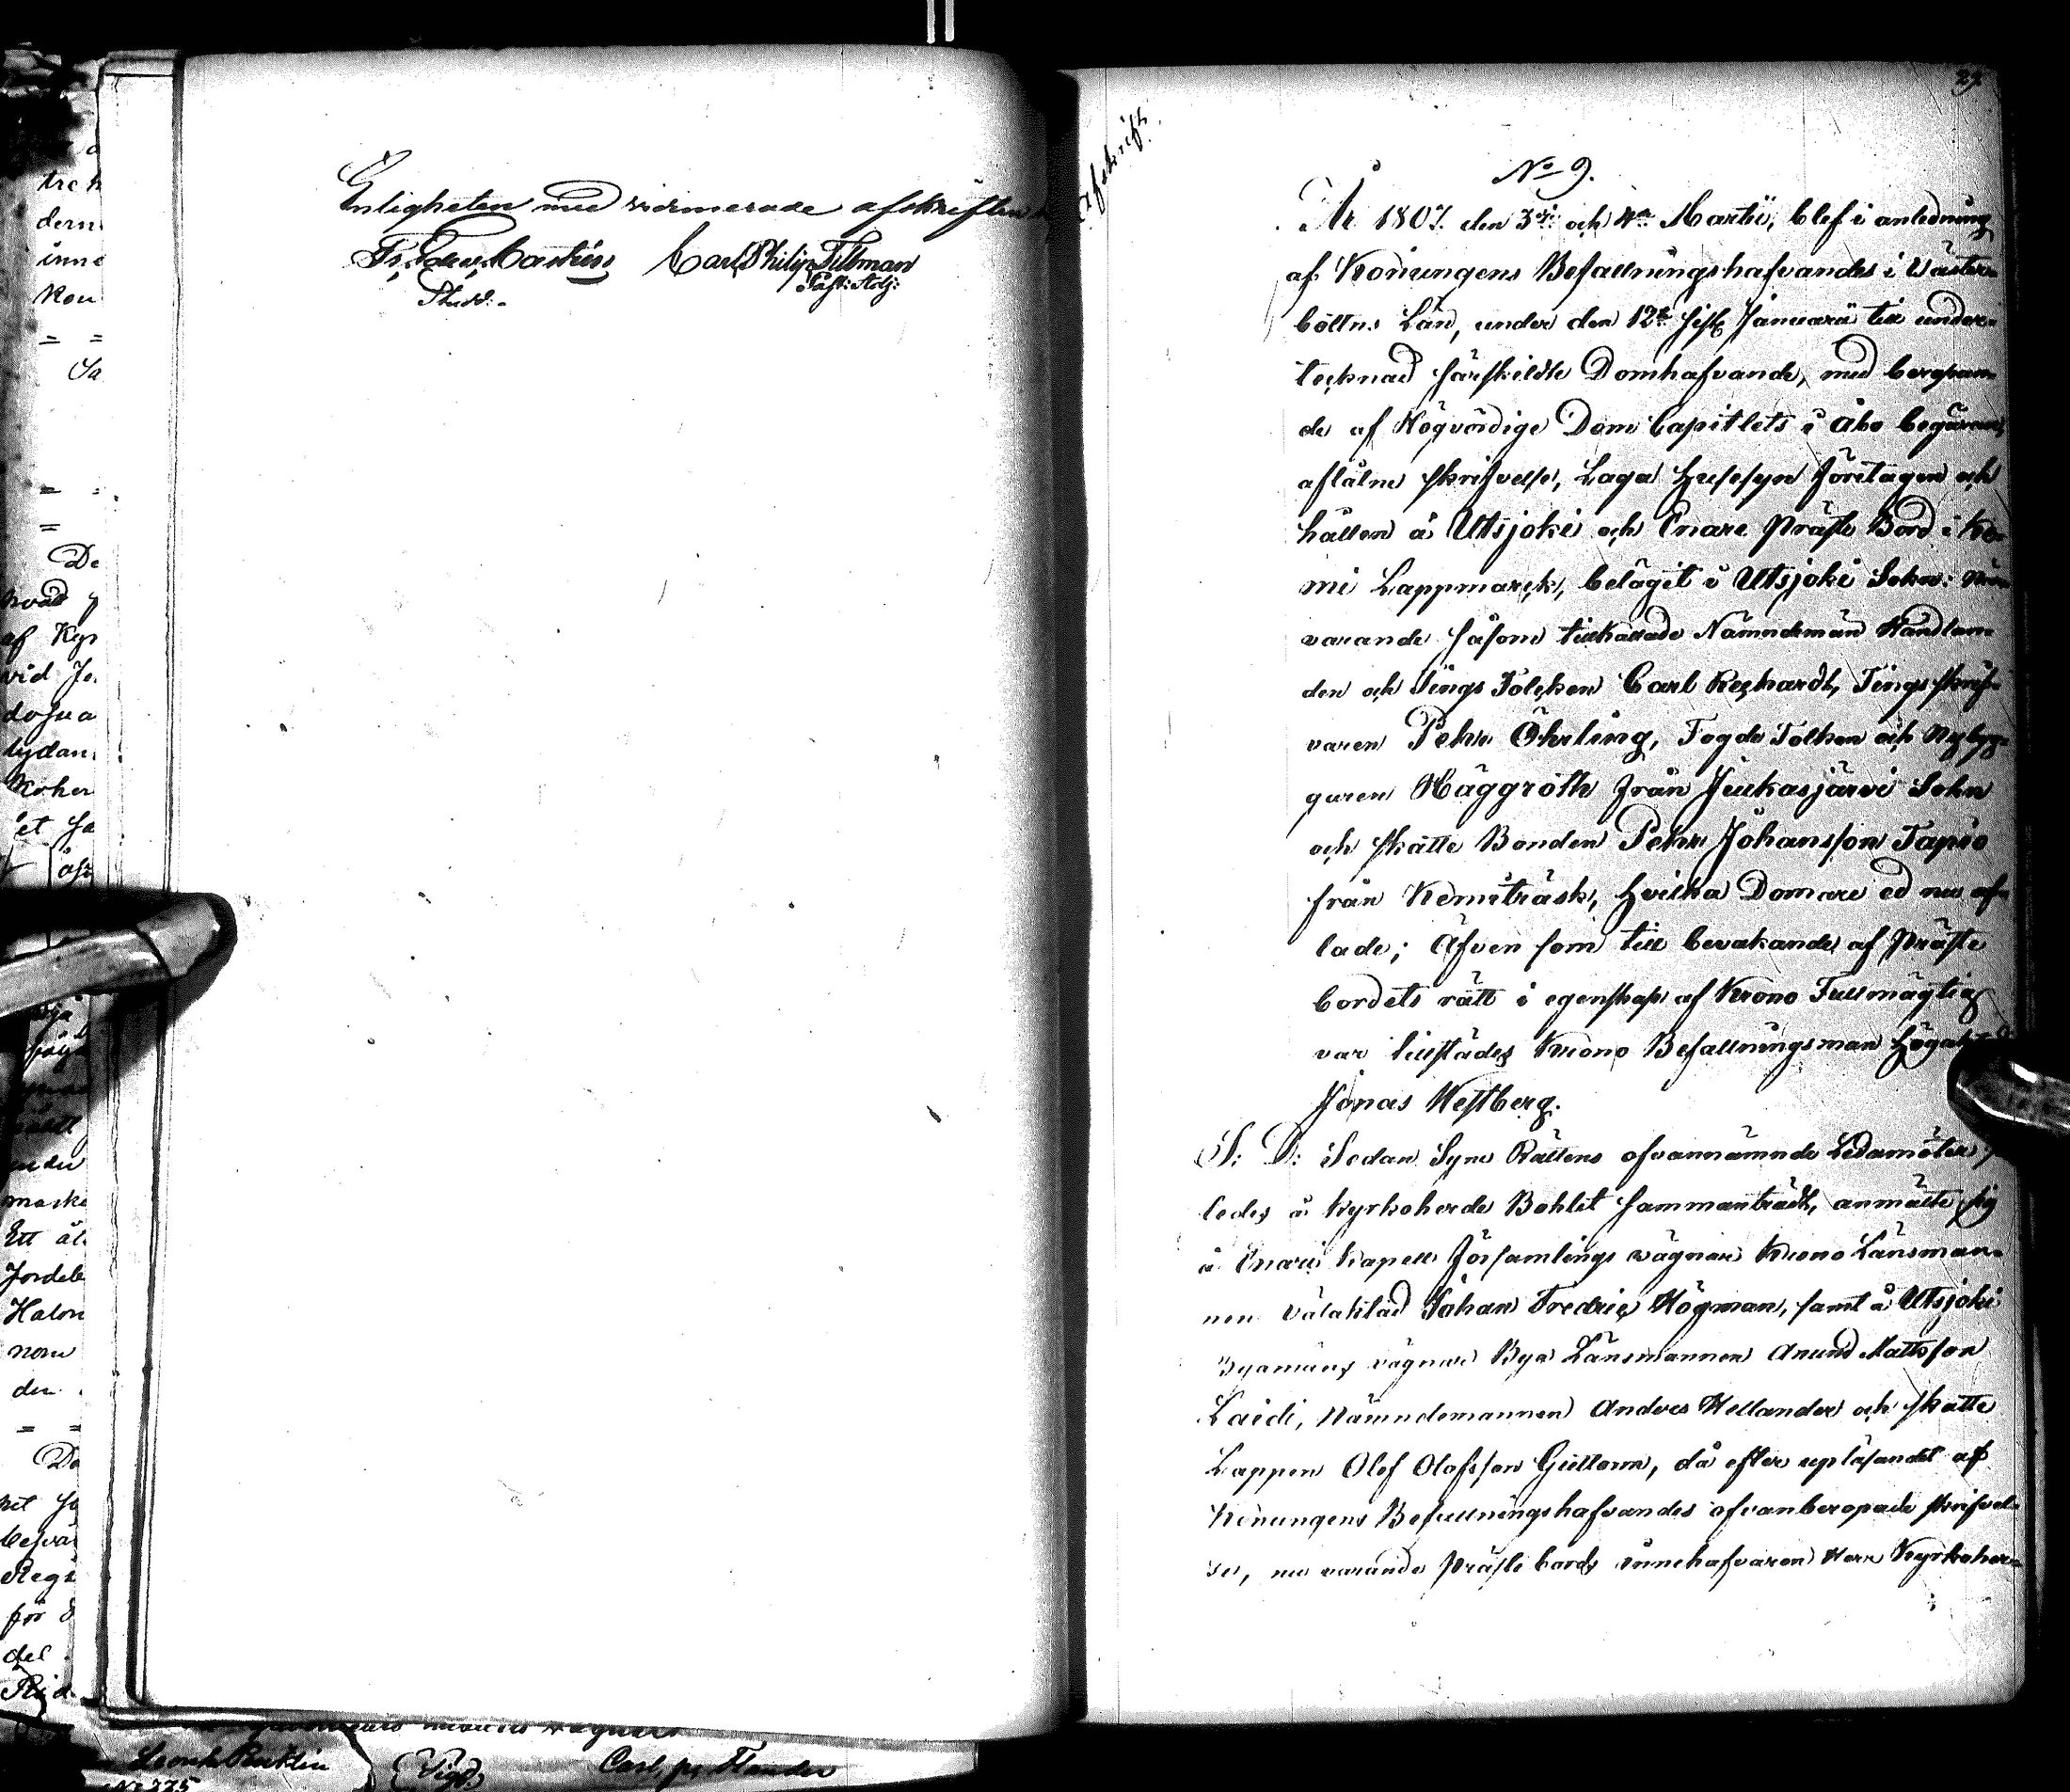 Enligheten med vidimerade afskriften
Carl Philip Tillman
Past: Adj:
Stud:
Afskrift.
No 9.
År 1807. den 3die och 4de Martii, blef i anledning
af Konungens Befallningshafvandes i Väster-
bottns Län, under den 12te sistl Januarii till under-
tecknad särskildte Domhafvande, med beropan-
de af Högvördige Dom Capitlets i Åbo begäran,
aflåtne skrifvelse, Laga Husesyn företagen och
hållen å Utsjoki och Enare Präste Bord i Ke-
mi Lappmarck, beläget i Utsjoki Sokn: När-
varande såsom tillkallade Nämndemän Handlan-
den och Tings Tolcken Carl Rechardt, Tingsskrif-
varen Pehr Öhrling, Fogde Tolken och Nybyg-
garen Häggroth från Juckasjärvi Sokn
och skatte Bonden Pehr Johansson Tapio
från Kemiträsk, hvilka Domare ed nu af-
lade; Äfven som till bevakande af Präste
bordets rätt i egenskap af Krono Fullmägtig
var tillstädes Krono Befallningsman Högaktad
Jonas Westberg.
S: D: Sedan Syne Rättens ofvannämnde Ledamöter
ledes å Kyrkoherde Bohlet sammanträdt, anmälte sig
å Enare Kapell Församlings vägnar Krono Länsman-
nen välaktad Johan Fredric Högman, samt å Utsjoki
Byamäns vägnar Bya Länsmannen Anund Mattsson
Laidi, Nämndemannen Anders Hellander och skatte
Lappen Olof Olofsson Guttorm, då efter upläsandet af
Konungens Befallningshafvandes ofvanberopade skrifvel-
se, nu varande Präste bords innehafvaren Herr Kyrkoher-